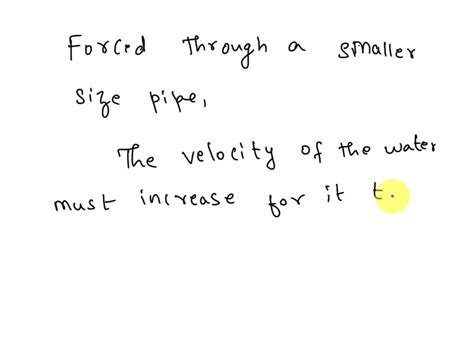 Forced through a smaller
size pipe,
The velocity of the water
must increase for it t.